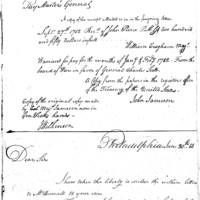 Pay Master General
A copy of the receipt alluded to is in the foregoing letter
Sept 27th 1782. Recd. of John Pierce P.M.G. two hundred
and fifty dollars in full
William Croghan Majr.
Warrant for pay for the months of Jany & Feby 1782. From the
board of War in favor of General Charles Scott.
A Copy from the papers in the register office
of the Treasury of the United States
John Jameson
Copy of the original copy made
by Col. Jameson now in
hands
Philadelphia June 30.
Dear Sir
I have taken the liberty to enclose the within letter
to your care